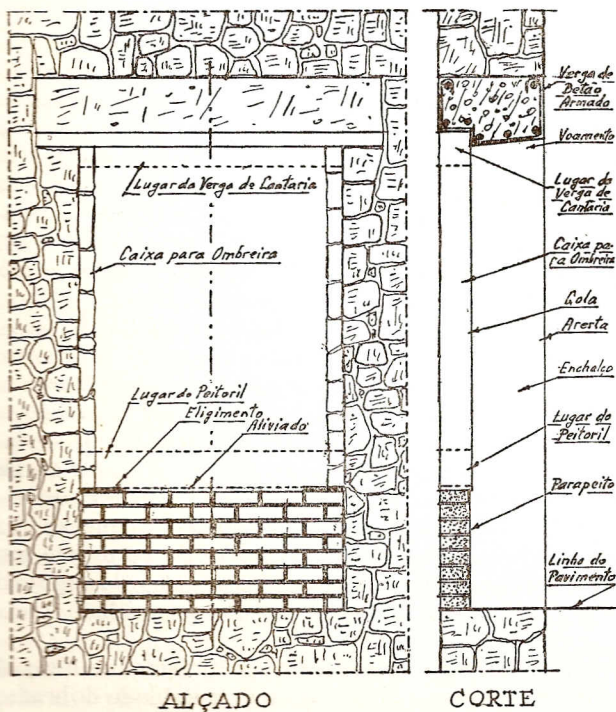 Lugar da Verga de Cantaria
Caixa para Ombreira
Lugar do Peitoril
Eligimento
Aliviado
ALÇADO
Verga de
Betão
Armado
Voamento
Lugar da
Verga de
Cantaria
Caixa pa-
ra Ombreira
Gola
Aresta
Enchalço
Lugar do
Peitoril
Parapeito
Linha do
Pavimento
CORTE